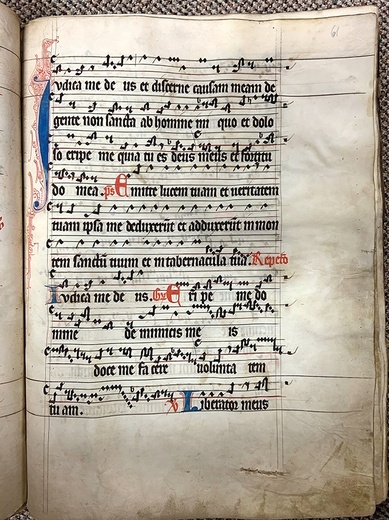 61
Iudica me de us et discerne causam meam de
gente non sancta ab homine ini quo et doloso
so eripe me quia tu es deus meus et fortitu
do mea. ps Emitte lucem tuam et ueritatem
tuam ipsa me deduxerūt et adduxerūt in mon
tem sanctū tuum et in tabernacula tua. Repeto
Iudica me de us. Gr. Eri pe me do
mine de inimicis me is
doce me fa cere volunta tem
tu am. V Liberator meus